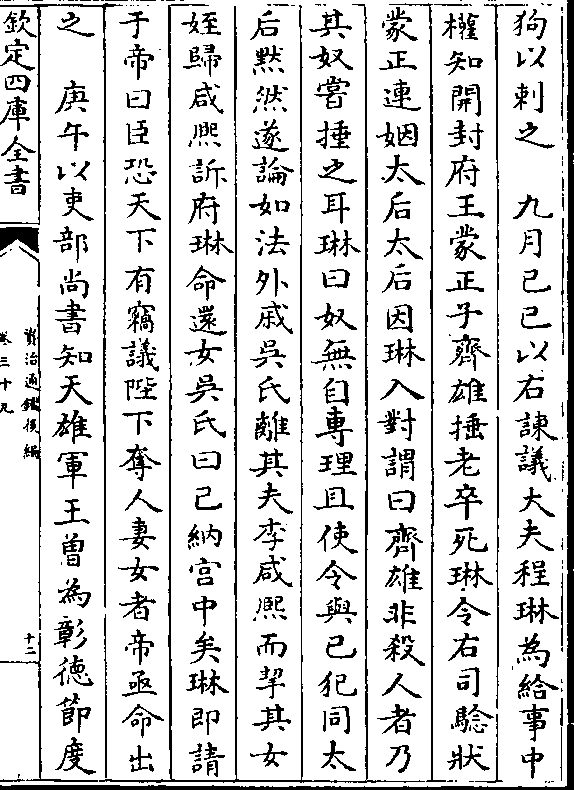 狗以刺之　九月己巳以右諫議大夫程琳為給事中
權知開封府王蒙正子齊雄捶老卒死琳令右司驗狀
蒙正連姻太后太后因琳入對謂曰齊雄非殺人者乃
其奴嘗捶之耳琳曰奴無自專理且使令與己犯同太
后黙然遂論如法外戚吳氏離其夫李咸熈而挈其女
姪歸咸熈訴府琳命還女吳氏曰已納宫中矣琳即請
于帝曰臣恐天下有竊議陛下奪人妻女者帝亟命出
之　庚午以吏部尚書知天雄軍王曾為彰徳節度
欽定四庫全書
資治通鑑後編
卷三十九
十二